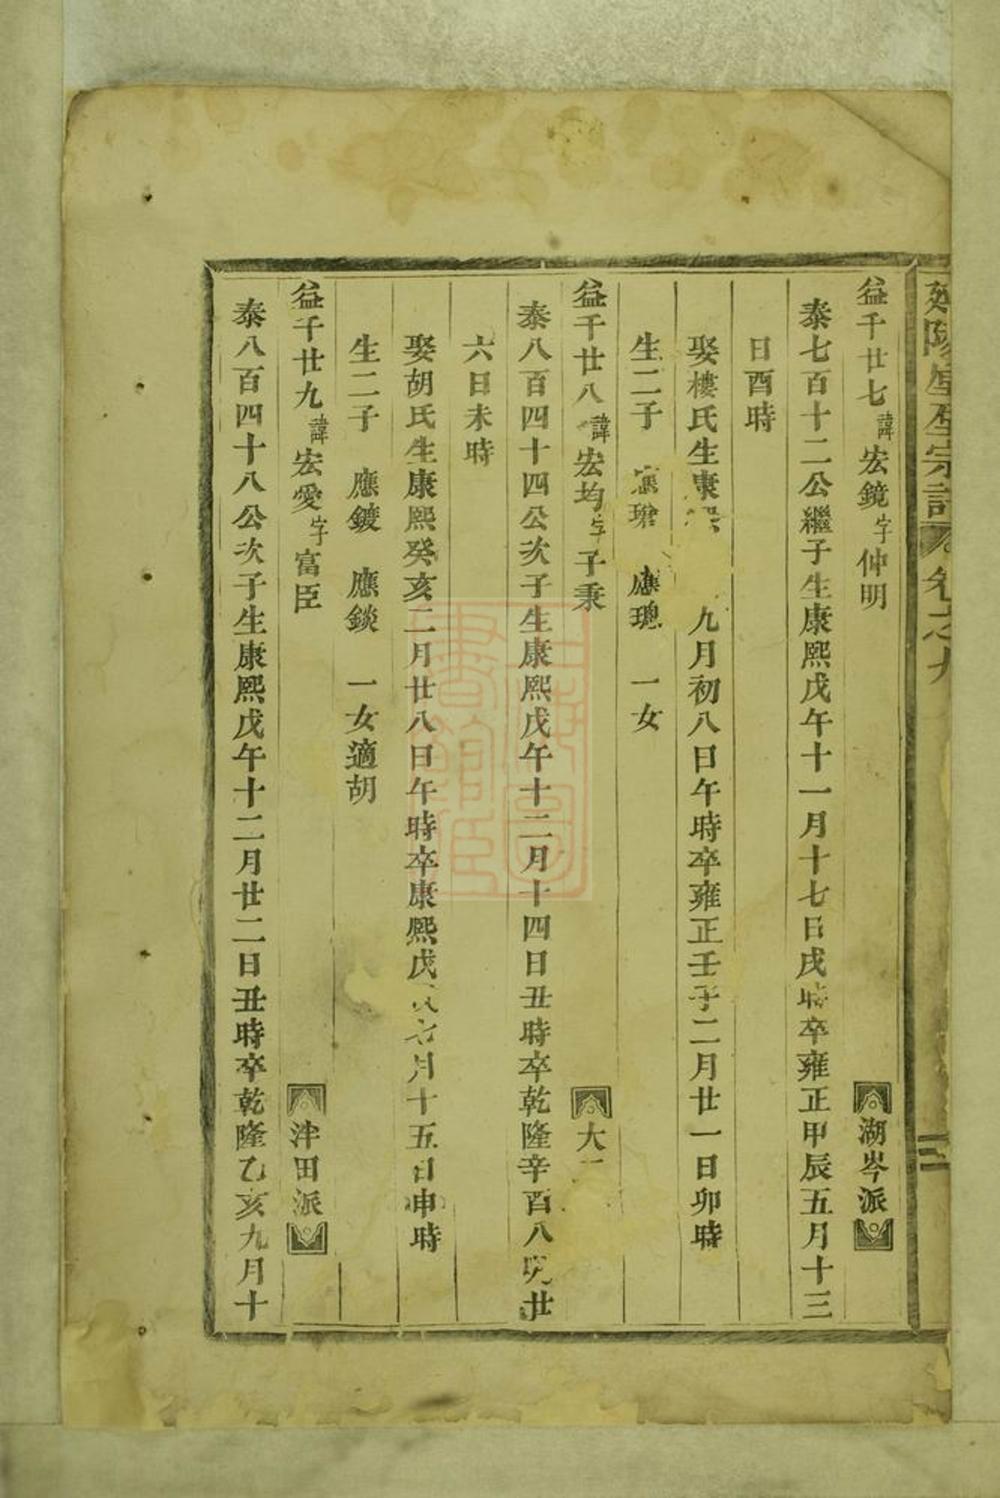 宗譜 卷之九
益千廿七 諱宏鏡 字仲明 湖岑派
泰七百十二公繼子生康熙戊午十一月十七日戌時卒雍正甲辰五月十三
日酉時
娶樓氏生康 九月初八日午時卒雍正壬子二月廿一日卯時
生二子 應 應璁 一女
益千廿八 諱宏均 字子秉 大
泰八百四十四公次子生康熙戊午十二月十四日丑時卒乾隆辛酉八 廿
六日未時
娶胡氏生康熙癸亥二月廿八日午時卒康熙戊 七月十五日申時
生二子 應鍍 應錟 一女適胡
益千廿九 諱宏愛 字富臣 泮田派
泰八百四十八公次子生康熙戊午十二月廿二日丑時卒乾隆乙亥九月十